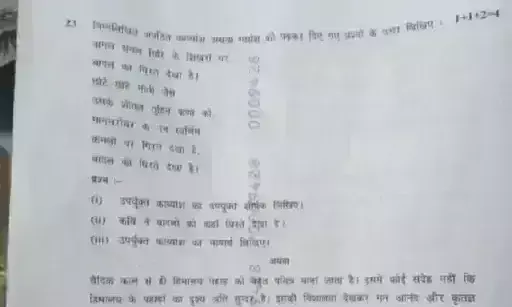 23 निम्नलिखित अपठित काव्यांश अथवा गद्यांश को पढ़कर दिए गए प्रश्नों के उत्तर लिखिए : 1+1+2=4
धवल गिरि के शिखरों पर
बादल को घिरते देखा है।
छोटे छोटे मोती जैसे
उसके शीतल तुहिन कणों को
मानसरोवर के उन स्वर्णिम
कमलों पर गिरते देखा है,
बादल को घिरते देखा है।
प्रश्न :-
(i) उपर्युक्त काव्यांश का उपयुक्त शीर्षक लिखिए।
(ii) कवि ने बादलों को कहाँ घिरते देखा है।
(iii) उपर्युक्त काव्यांश का भावार्थ लिखिए।
अथवा
वैदिक काल से ही हिमालय पहाड़ को बहुत पवित्र माना जाता है। इसमें कोई संदेह नहीं कि
हिमालय के पहाड़ों का दृश्य अति सुन्दर है। इसकी विशालता देखकर मन आनंद और कृतज्ञ
0009428